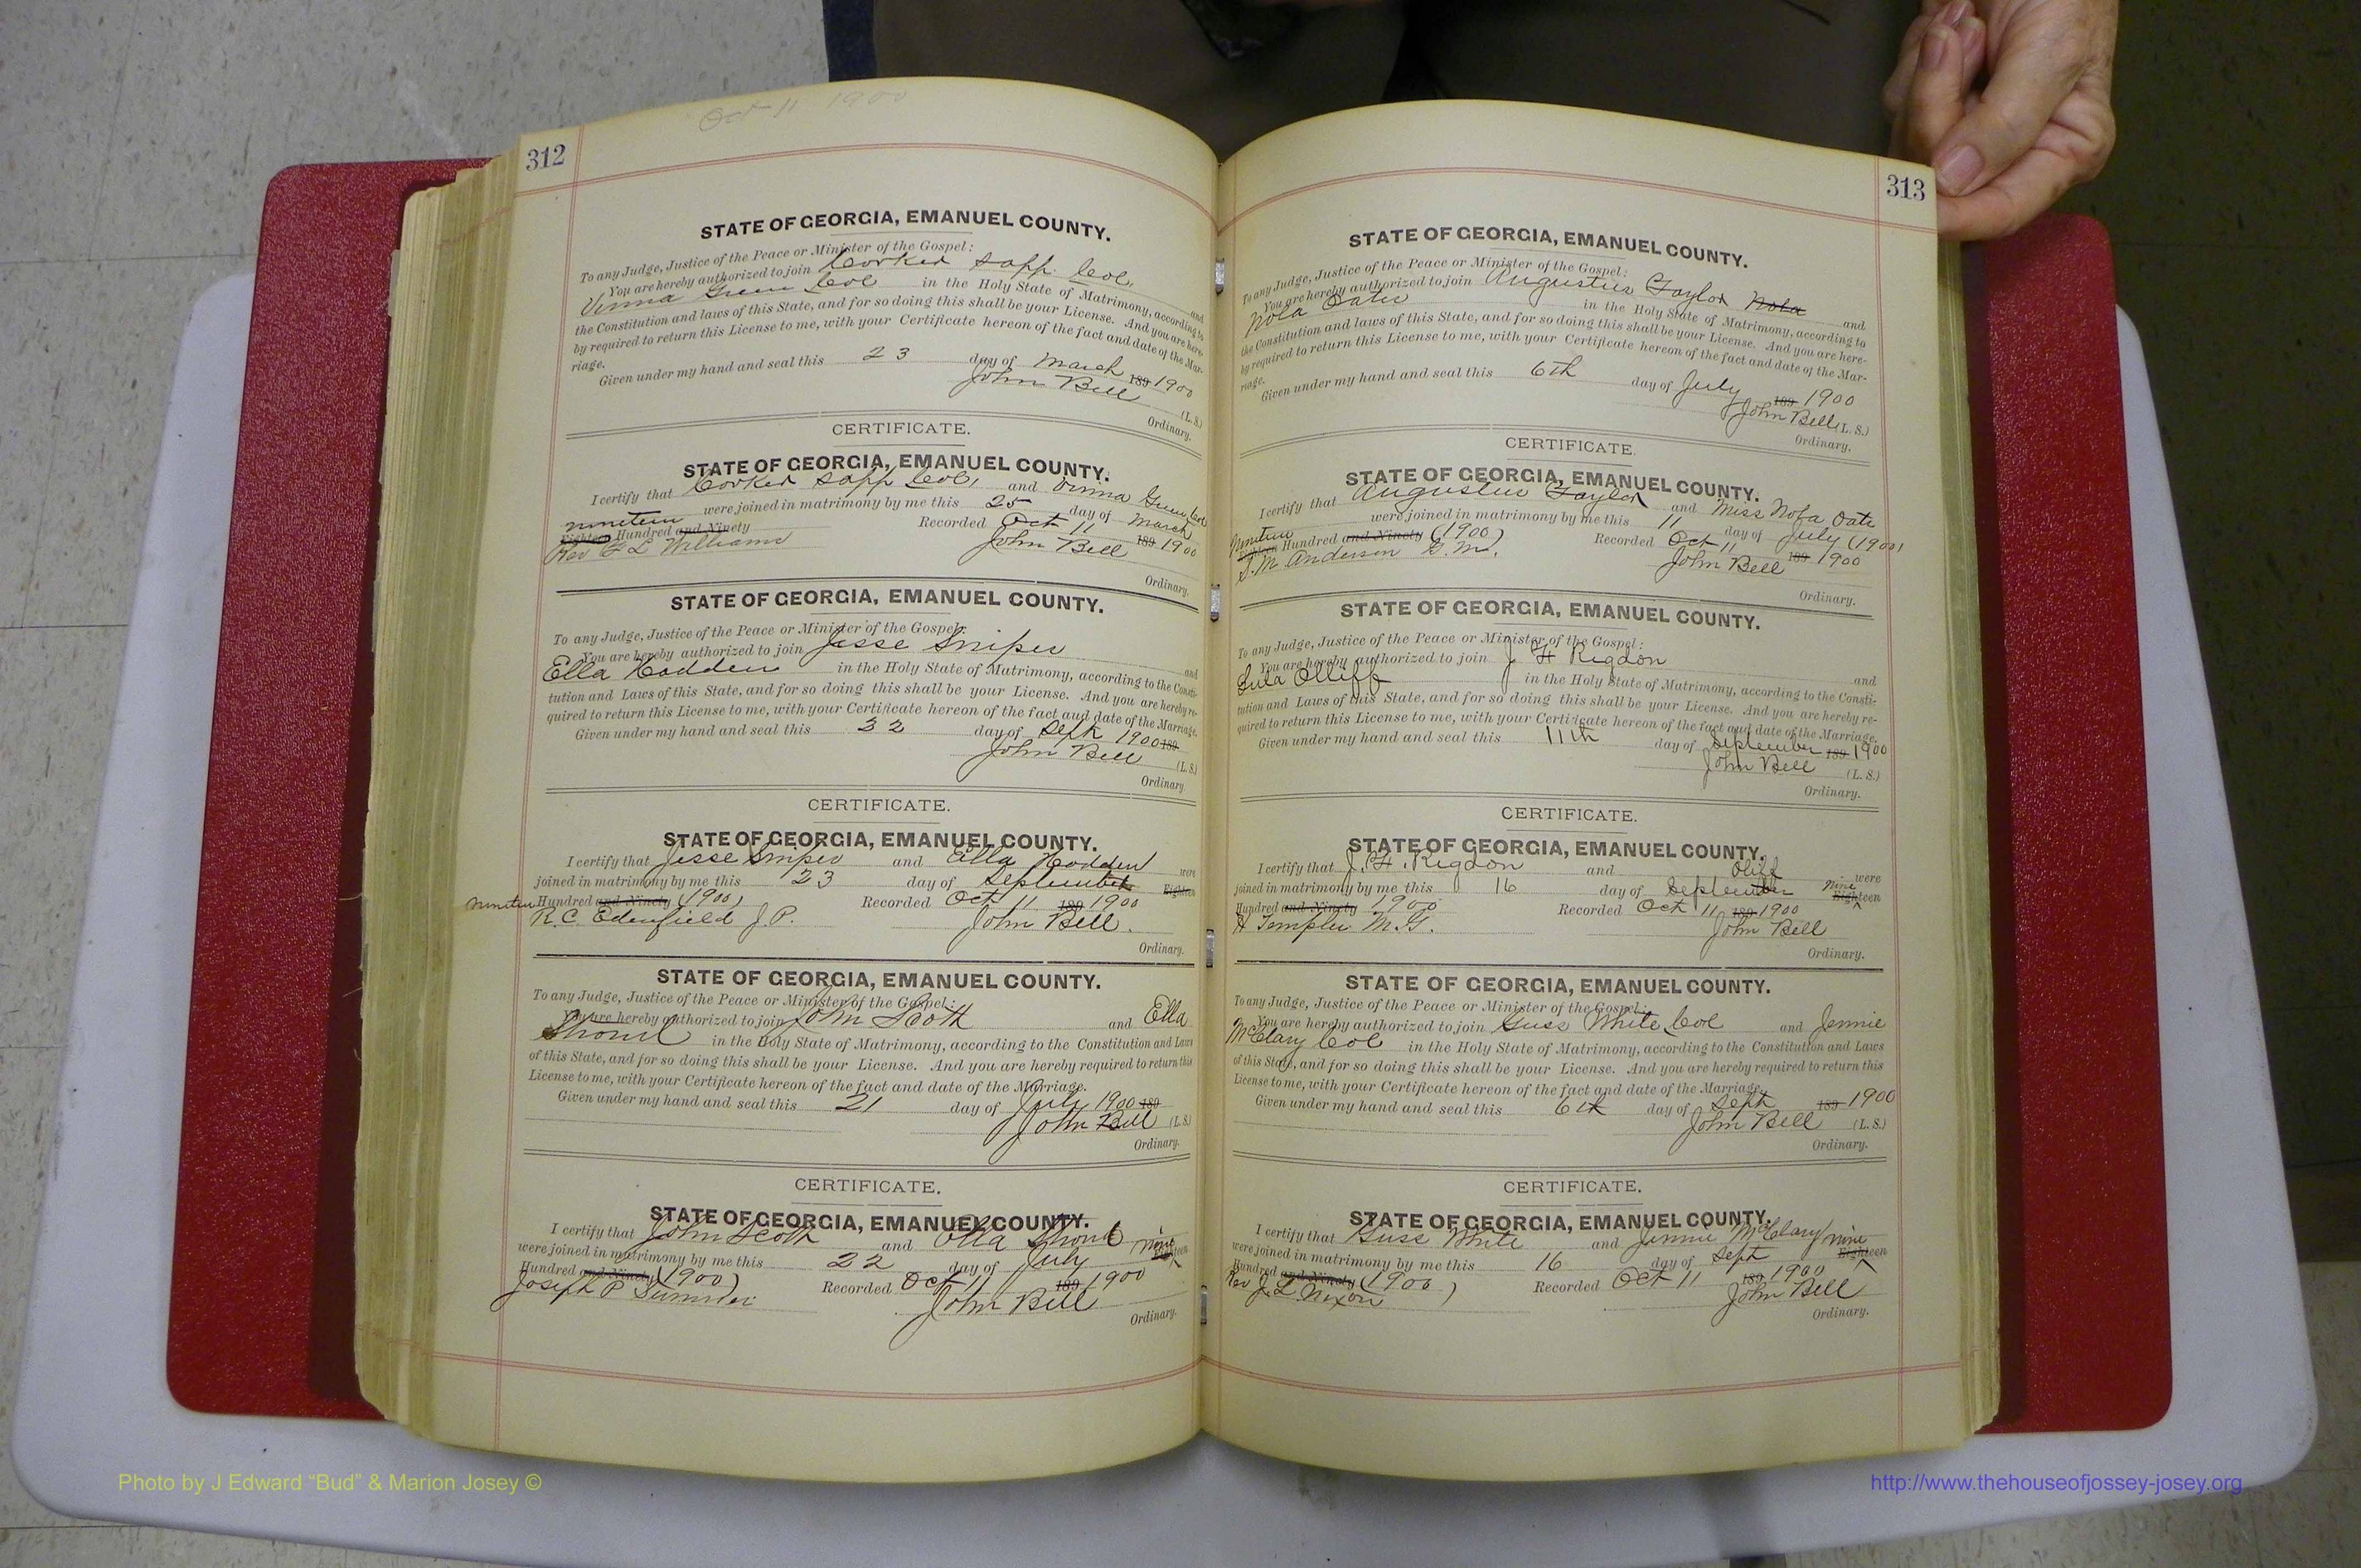 Oct 11 1900
312
STATE OF GEORGIA, EMANUEL COUNTY.
To any Judge, Justice of the Peace or Minister of the Gospel:
You are hereby authorized to join Corker Sapp Col. and
Green Col in the Holy State of Matrimony, according to
the Constitution and laws of this State, and for so doing this shall be your License. And you are here-
by required to return this License to me, with your Certificate hereon of the fact and date of the Mar-
riage.
Given under my hand and seal this 23 day of March 189 1900
John Bell (L. S.)
Ordinary.
CERTIFICATE.
STATE OF GEORGIA, EMANUEL COUNTY.
I certify that Corker Sapp Col, and Green Col
were joined in matrimony by me this 25 day of March
nineteen Eighteen Hundred and Ninety Recorded Oct 11 189 1900
Rev F L Williams John Bell
Ordinary.
STATE OF GEORGIA, EMANUEL COUNTY.
To any Judge, Justice of the Peace or Minister of the Gospel:
You are hereby authorized to join Jesse Snipes and
Ella in the Holy State of Matrimony, according to the Consti-
tution and Laws of this State, and for so doing this shall be your License. And you are hereby re-
quired to return this License to me, with your Certificate hereon of the fact and date of the Marriage.
Given under my hand and seal this 22 day of Sept 1900 189
John Bell (L. S.)
Ordinary.
CERTIFICATE.
STATE OF GEORGIA, EMANUEL COUNTY.
I certify that Jesse Snipes and Ella were
joined in matrimony by me this 23 day of September Eighteen
nineteen Hundred and Ninety (1900) Recorded Oct 11 189 1900
R. C. Edenfield J. P. John Bell.
Ordinary.
STATE OF GEORGIA, EMANUEL COUNTY.
To any Judge, Justice of the Peace or Minister of the Gospel:
You are hereby authorized to join John Scott and Ella
in the Holy State of Matrimony, according to the Constitution and Laws
of this State, and for so doing this shall be your License. And you are hereby required to return this
License to me, with your Certificate hereon of the fact and date of the Marriage.
Given under my hand and seal this 21 day of July 1900 189
John Bell (L. S.)
Ordinary.
CERTIFICATE.
STATE OF GEORGIA, EMANUEL COUNTY.
I certify that John Scott and Ella
were joined in matrimony by me this 22 day of July nine Eighteen
Hundred and Ninety (1900) Recorded Oct 11 189 1900
Joseph P John Bell
Ordinary.
313
STATE OF GEORGIA, EMANUEL COUNTY.
To any Judge, Justice of the Peace or Minister of the Gospel:
You are hereby authorized to join Augustus Taylor Nola and
Nola in the Holy State of Matrimony, according to
the Constitution and laws of this State, and for so doing this shall be your License. And you are here-
by required to return this License to me, with your Certificate hereon of the fact and date of the Mar-
riage.
Given under my hand and seal this 6th day of July 189 1900
John Bell (L. S.)
Ordinary.
CERTIFICATE.
STATE OF GEORGIA, EMANUEL COUNTY.
I certify that Augustus Taylor and Miss Nola
were joined in matrimony by me this 11 day of July (1900)
Nineteen Eighteen Hundred and Ninety (1900) Recorded Oct 11 189 1900
Anderson John Bell
Ordinary.
STATE OF GEORGIA, EMANUEL COUNTY.
To any Judge, Justice of the Peace or Minister of the Gospel:
You are hereby authorized to join J H Rigdon and
Lula Olliff in the Holy State of Matrimony, according to the Consti-
tution and Laws of this State, and for so doing this shall be your License. And you are hereby re-
quired to return this License to me, with your Certificate hereon of the fact and date of the Marriage.
Given under my hand and seal this 11th day of September 189 1900
John Bell (L. S.)
Ordinary.
CERTIFICATE.
STATE OF GEORGIA, EMANUEL COUNTY.
I certify that J. H. Rigdon and Oliff were
joined in matrimony by me this 16 day of September nine Eighteen
Hundred and Ninety 1900 Recorded Oct 11 189 1900
H Temples M. G. John Bell
Ordinary.
STATE OF GEORGIA, EMANUEL COUNTY.
To any Judge, Justice of the Peace or Minister of the Gospel:
You are hereby authorized to join Guss White Col and Jennie
McClary Col in the Holy State of Matrimony, according to the Constitution and Laws
of this State, and for so doing this shall be your License. And you are hereby required to return this
License to me, with your Certificate hereon of the fact and date of the Marriage.
Given under my hand and seal this 6th day of Sept 189 1900
John Bell (L. S.)
Ordinary.
CERTIFICATE.
STATE OF GEORGIA, EMANUEL COUNTY.
I certify that Guss White and Jennie McClary
were joined in matrimony by me this 16 day of Sept nine Eighteen
Hundred and Ninety (1900) Recorded Oct 11 189 1900
Rev J. L Nixon John Bell
Ordinary.
Photo by J Edward “Bud” & Marion Josey ©
http://www.thehouseofjossey-josey.org